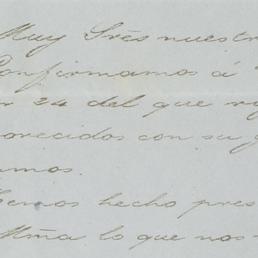 Muy Sres nuestr
Confirmamos á
24 del que
orecidos con su
amos.
emos hecho pres
Mña lo que nos